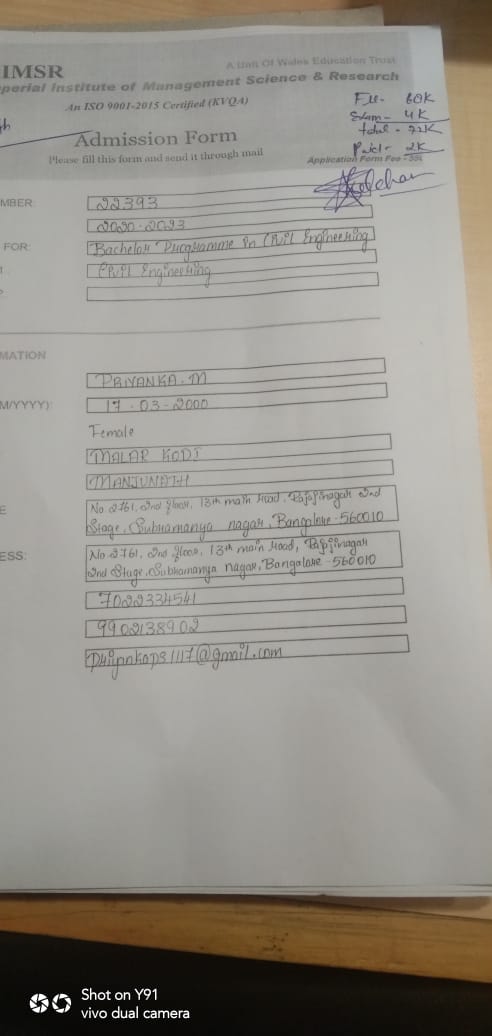 IMSR
A Unit Of Wales Education Trust
perial Institute of Management Science & Research
An ISO 9001-2015 Certified (KVQA)
Fee- 60K
Exam- 4K
total -
Paid- 2K
Admission Form
Please fill this form and send it through mail
Application Form Fee -
MBER: 22393
2020-2023
FOR: Bachelor Programme in Civil Engineering
Civil Engineering
MATION
PRIYANKA.M
M/YYYY): 17-03-2000
Female
MALAR KODI
MANJUNATH
E No 2761, 2nd floor, 13th main road, Rajajinagar 2nd
Stage, Subramanya nagar, Bangalore-560010
ESS: No 2761, 2nd floor, 13th main road, Rajajinagar
2nd Stage, Subramanya nagar, Bangalore-560010
7022334541
9902138902
@gmail.com
Shot on Y91
vivo dual camera